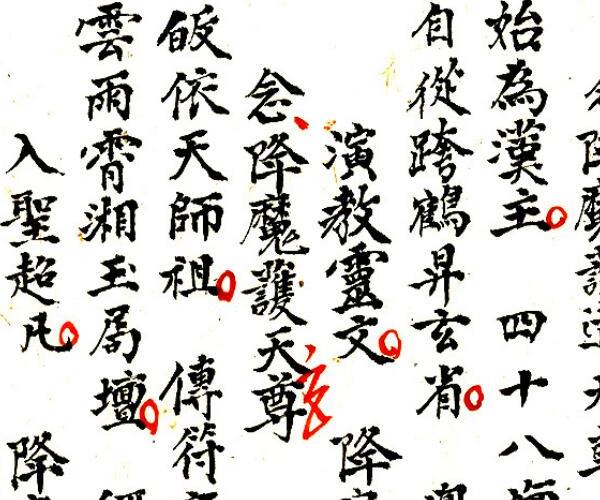 始為漢主 四十八
自從跨鶴昇玄省
演教靈文 降
念降魔護天尊
皈依天師祖 傳符
雲雨霄湘玉局壇
入聖超凡 降